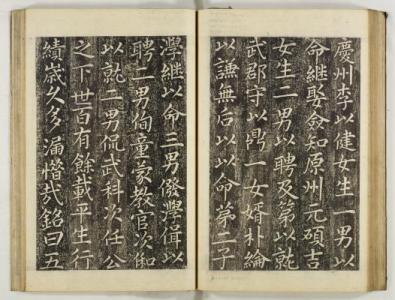 慶州李以健女生一男以
命継娶僉知原州元碩吉
女生二男以聘及第以就
武郡守以一女婿朴綸
以謙無后以以命第二子
継以命三男以
聘一男佝童蒙教官次
以就二男侃武科次任公
之下世百有餘載平生行
績歲久多漏惜哉銘曰五